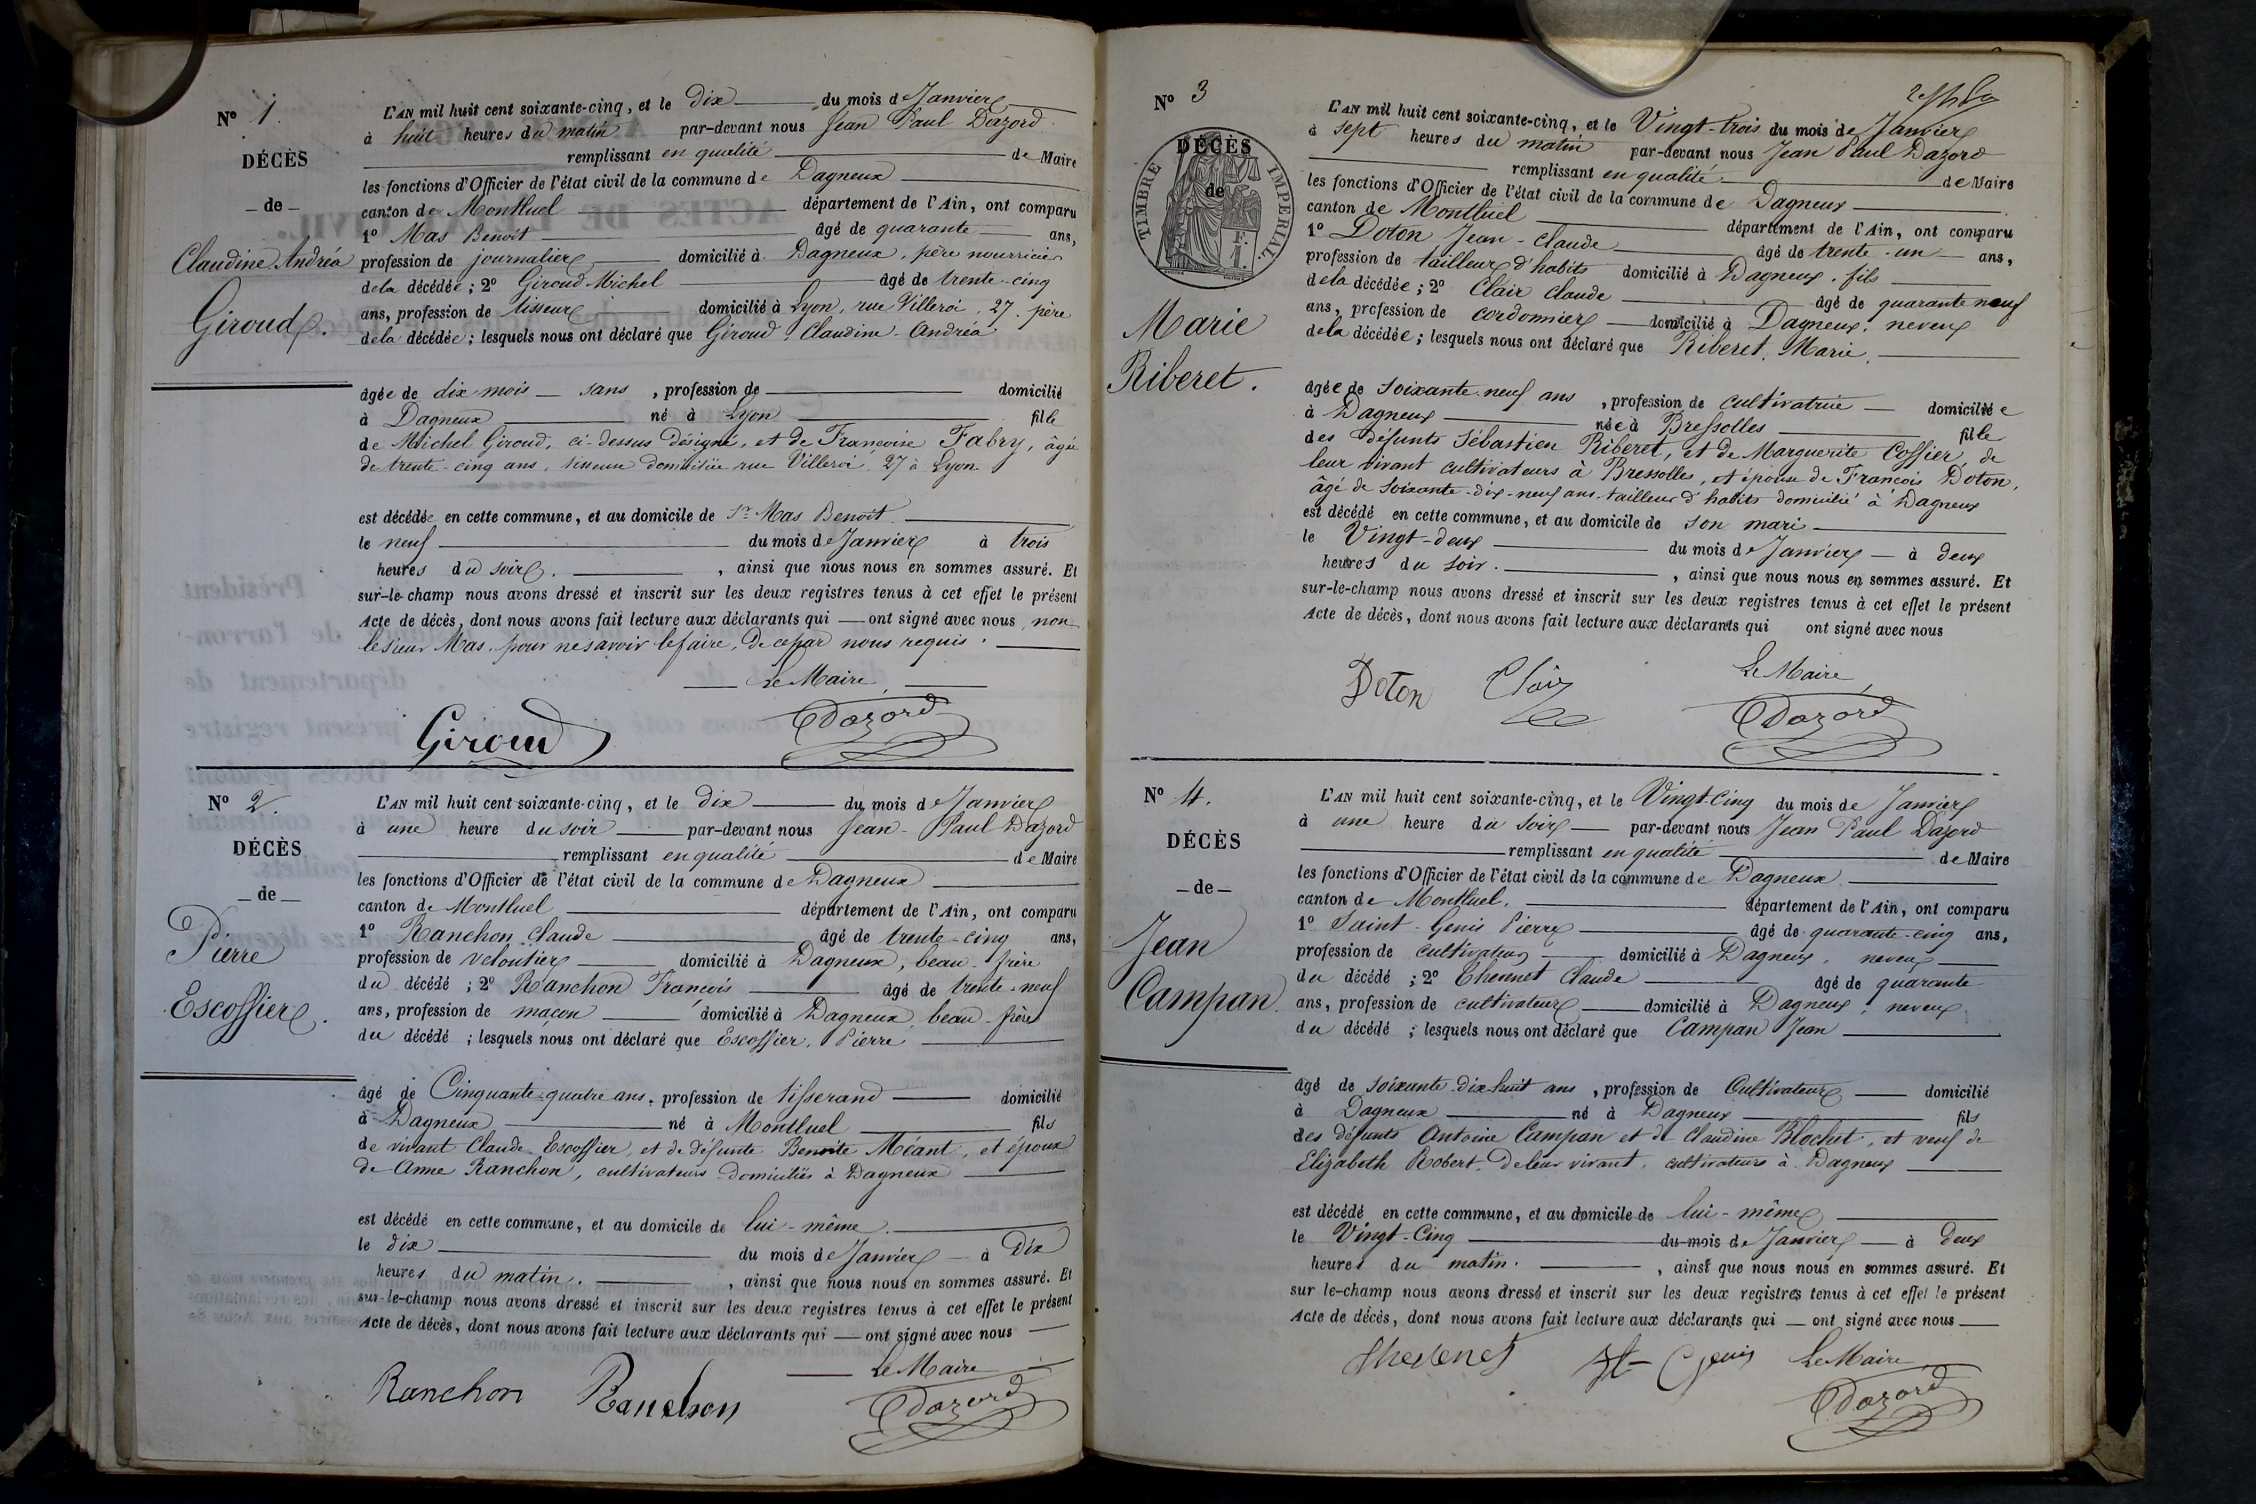 N° 1.
DÉCÈS
de
Claudine Andréa
Giroud.
L'AN mil huit cent soixante-cinq, et le Dix du mois de Janvier
à huit heures du matin par-devant nous Jean Paul Dazord
remplissant en qualité de Maire
les fonctions d'Officier de l'état civil de la commune de Dagneux
canton de Montluel département de l'Ain, ont comparu
1° Mas Benoit âgé de quarante ans,
profession de journalier domicilié à Dagneux, père nourricier
de la décédée ; 2° Giroud Michel âgé de trente-cinq
ans, profession de tisseur domicilié à Lyon, rue Villeroi, 27. père
de la décédée ; lesquels nous ont déclaré que Giroud Claudine-Andréa
âgée de dix mois sans , profession de domicilié
à Dagneux né à Lyon fille
de Michel Giroud, ci-dessus désigné, et de Françoise Fabry, âgée
de trente-cinq ans, tisseuse domiciliée rue Villeroi, 27 à Lyon
est décédée en cette commune, et au domicile de Sr Mas Benoit
le neuf du mois de Janvier à trois
heures du soir. , ainsi que nous nous en sommes assuré. Et
sur-le-champ nous avons dressé et inscrit sur les deux registres tenus à cet effet le présent
Acte de décès, dont nous avons fait lecture aux déclarants qui ont signé avec nous, non
le Sieur Mas, pour ne savoir le faire, de ce par nous requis.
Le Maire,
Giroud Dazord
N° 2.
DÉCÈS
de
Pierre
Escoffier.
L'AN mil huit cent soixante-cinq, et le Dix du mois de Janvier
à une heure du soir par-devant nous Jean-Paul Dazord
remplissant en qualité de Maire
les fonctions d'Officier de l'état civil de la commune de Dagneux
canton de Montluel département de l'Ain, ont comparu
1° Ranchon Claude âgé de trente-cinq ans,
profession de veloutier domicilié à Dagneux, beau-frère
du décédé ; 2° Ranchon François âgé de trente-neuf
ans, profession de maçon domicilié à Dagneux, beau-frère
du décédé ; lesquels nous ont déclaré que Escoffier, Pierre
âgé de Cinquante-quatre ans, profession de tisserand domicilié
à Dagneux né à Montluel fils
de vivant Claude Escoffier, et de défunte Benoite Méant, et époux
de Anne Ranchon, cultivateurs domiciliés à Dagneux
est décédé en cette commune, et au domicile de lui-même
le dix du mois de Janvier à Dix
heures du matin. , ainsi que nous nous en sommes assuré. Et
sur-le-champ nous avons dressé et inscrit sur les deux registres tenus à cet effet le présent
Acte de décès, dont nous avons fait lecture aux déclarants qui ont signé avec nous
Le Maire
Ranchon Ranchon Dazord
N° 3
TIMBRE IMPÉRIAL.
DÉCÈS
de
F.
1.
Marie
Riberet.
L'AN mil huit cent soixante-cinq, et le Vingt-trois du mois de Janvier
à sept heures du matin par-devant nous Jean Paul Dazord
remplissant en qualité de Maire
les fonctions d'Officier de l'état civil de la commune de Dagneux
canton de Montluel département de l'Ain, ont comparu
1° Doton Jean-Claude âgé de trente-un ans,
profession de tailleur d'habits domicilié à Dagneux, fils
de la décédée ; 2° Clair Claude âgé de quarante neuf
ans, profession de cordonnier domicilié à Dagneux, neveu
de la décédée ; lesquels nous ont déclaré que Riberet, Marie,
âgée de soixante-neuf ans , profession de cultivatrice domiciliée
à Dagneux née à Bressolles fille
des défunts Sébastien Riberet, et de Marguerite Cossier, de
leur vivant cultivateurs à Bressolles, et épouse de François Doton,
âgé de soixante-dix-neuf ans, tailleur d'habits domicilié à Dagneux
est décédé en cette commune, et au domicile de son mari
le Vingt-deux du mois de Janvier à deux
heures du soir. , ainsi que nous nous en sommes assuré. Et
sur-le-champ nous avons dressé et inscrit sur les deux registres tenus à cet effet le présent
Acte de décès, dont nous avons fait lecture aux déclarants qui ont signé avec nous
Le Maire,
Doton Clair Dazord
N° 4.
DÉCÈS
de
Jean
Campan.
L'AN mil huit cent soixante-cinq, et le Vingt-Cinq du mois de Janvier
à une heure du soir par-devant nous Jean Paul Dazord
remplissant en qualité de Maire
les fonctions d'Officier de l'état civil de la commune de Dagneux
canton de Montluel. département de l'Ain, ont comparu
1° Saint-Genis Pierre âgé de quarante-cinq ans,
profession de cultivateur domicilié à Dagneux, neveu
du décédé ; 2° Thevenet Claude âgé de quarante
ans, profession de cultivateur domicilié à Dagneux, neveu
du décédé ; lesquels nous ont déclaré que Campan Jean
âgé de soixante-dix huit ans , profession de Cultivateur domicilié
à Dagneux né à Dagneux fils
des défunts Antoine Campan et de Claudine Blochet, et veuf de
Elizabeth Robert. De leur vivant, cultivateurs à Dagneux
est décédé en cette commune, et au domicile de lui-même
le Vingt-Cinq du mois de Janvier à deux
heures du matin. , ainsi que nous nous en sommes assuré. Et
sur le-champ nous avons dressé et inscrit sur les deux registres tenus à cet effet le présent
Acte de décès, dont nous avons fait lecture aux déclarants qui ont signé avec nous
Thevenet St-Genis Le Maire
Dazord